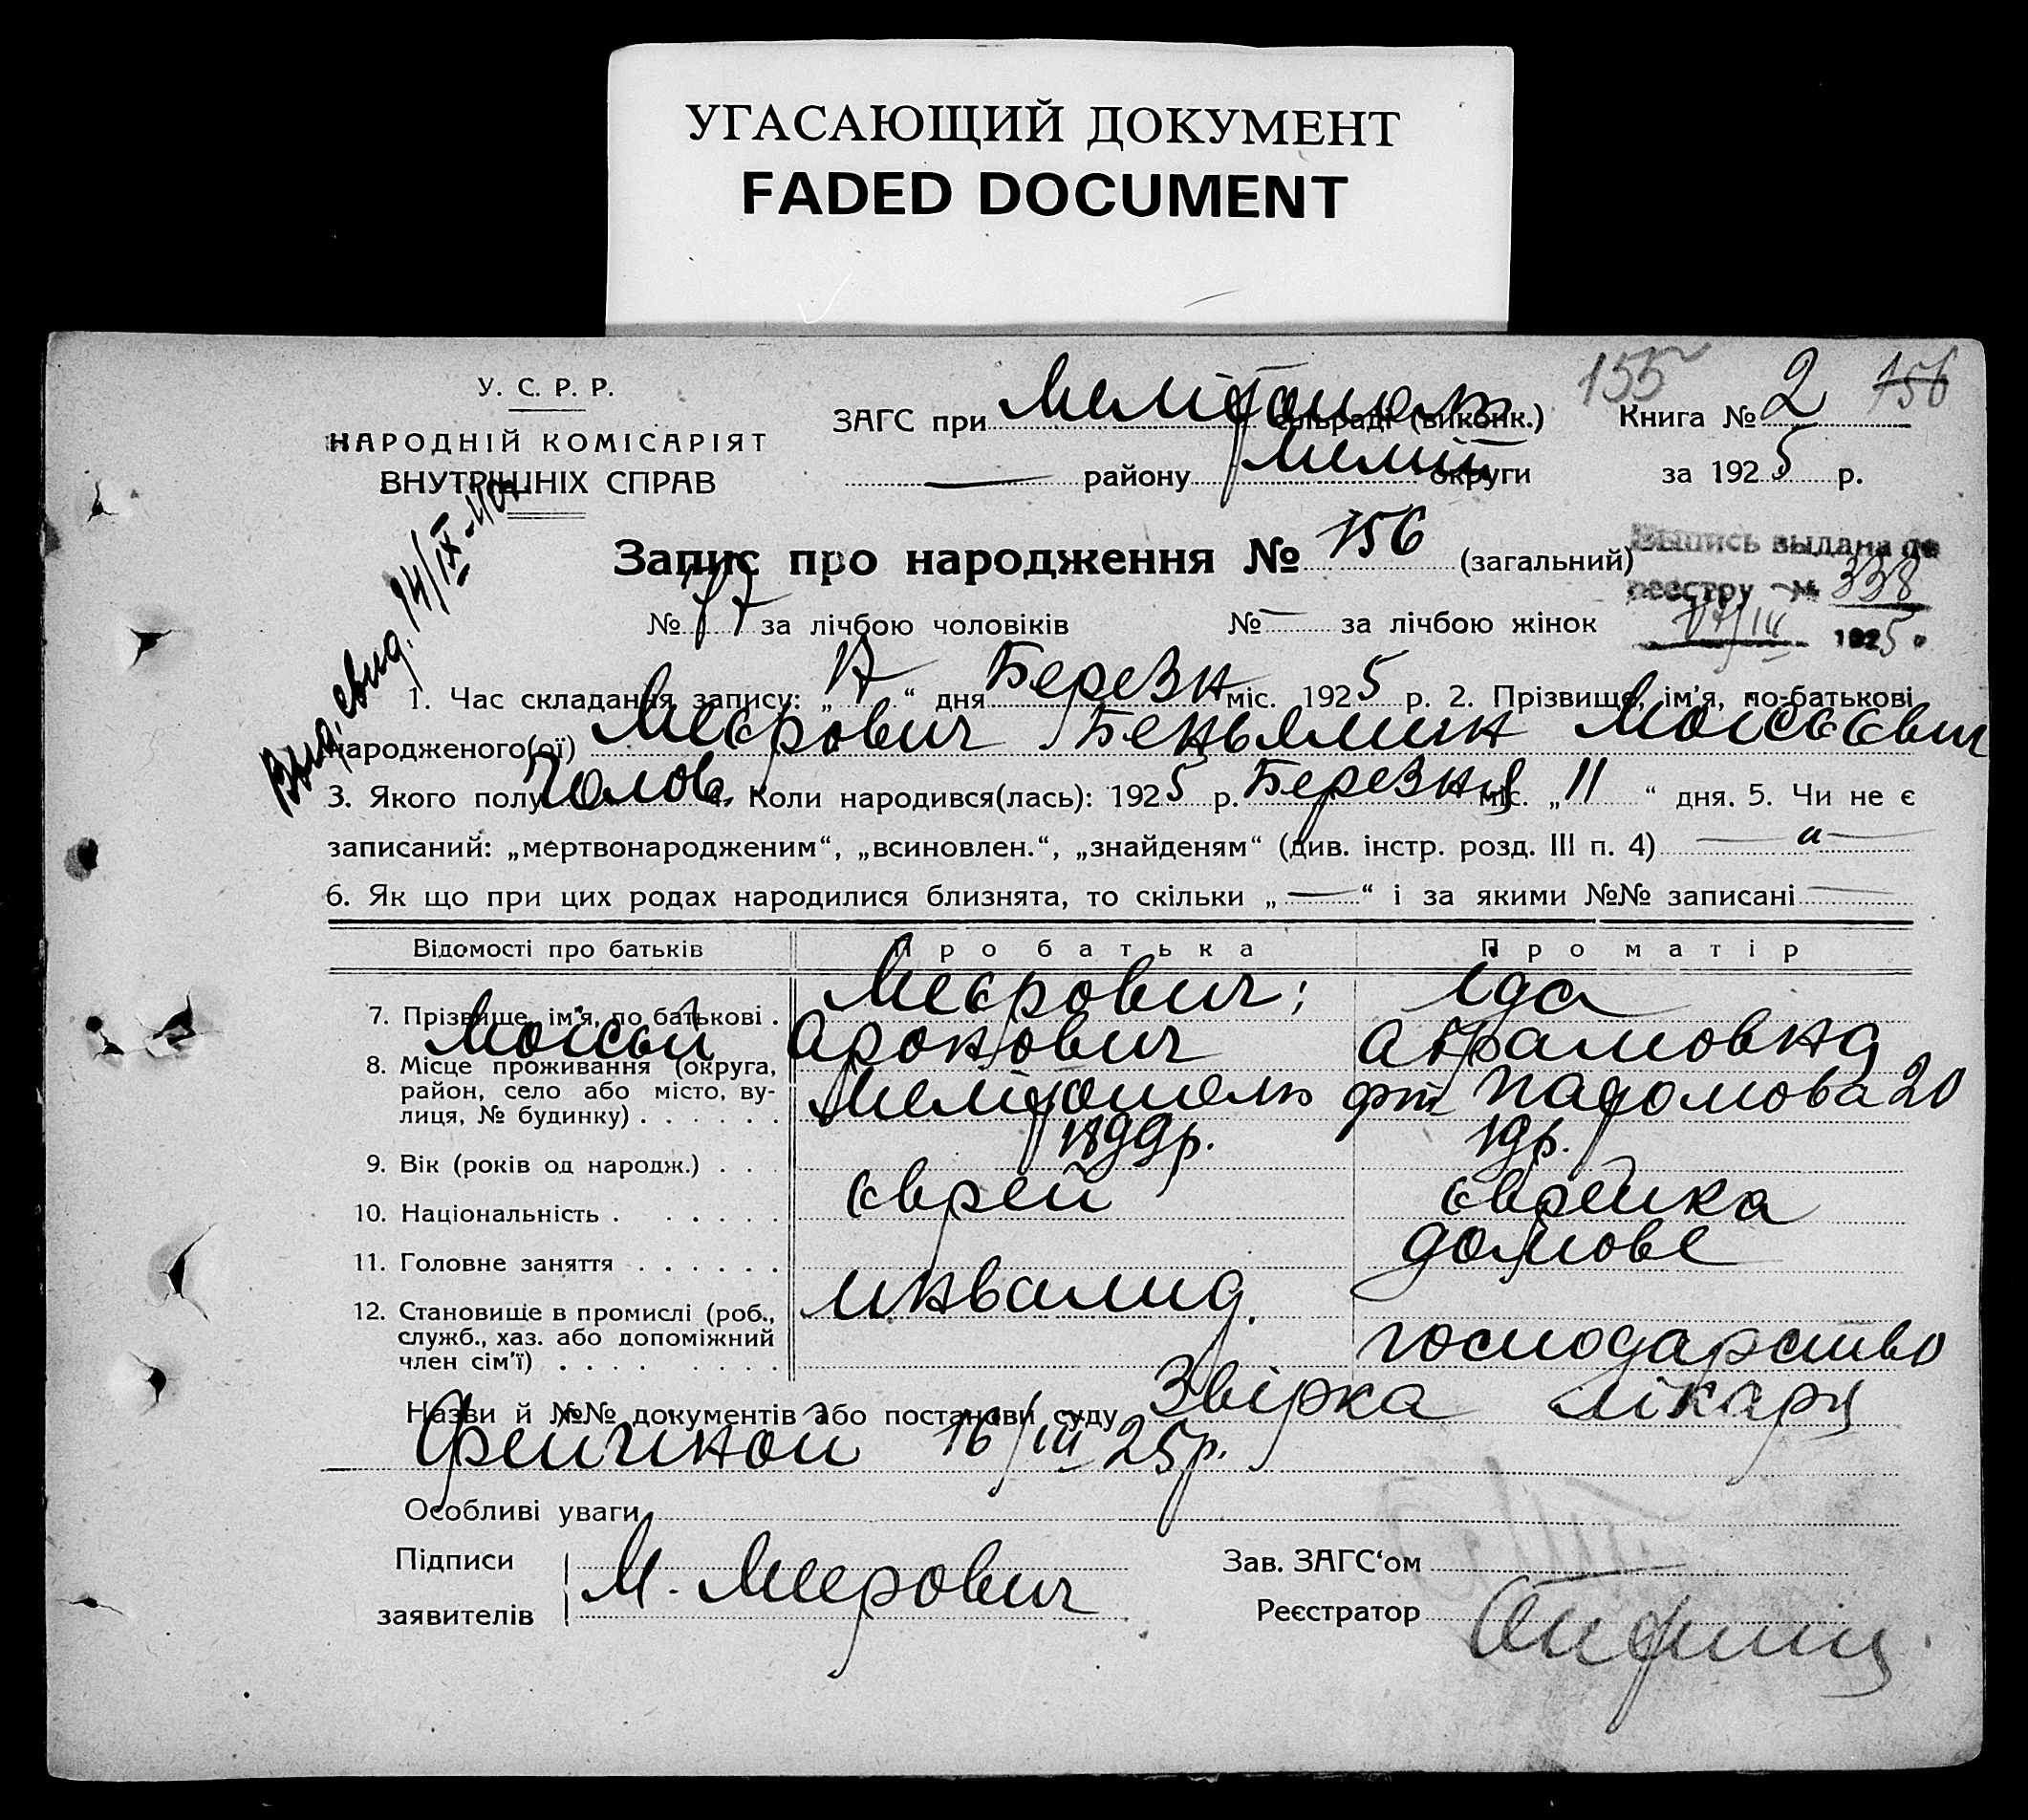 УГАСАЮЩИЙ ДОКУМЕНТ
FADED DOCUMENT
155 156
У. С. Р. Р.
НАРОДНІЙ КОМІСАРІЯТ
ВНУТРІШНІХ СПРАВ
ЗАГС при Меліtополь сільраді (виконк.) Книга № 2
— району Меліт округи за 1925 р.
Вид. свид. 14/IX-40
Запис про народження № 156 (загальний)
Выпись выдана по
реестру № 338
17/III 1925 г.
№ 77 за лічбою чоловіків № — за лічбою жінок
1. Час складання запису: „17“ дня Березня міс. 1925 р. 2. Прізвище, ім'я, по-батькові
народженого(ої) Меєрович Беньямин Моісєєвич
3. Якого полу Чолов. 4. Коли народився(лась): 1925 р. Березня міс. „11“ дня. 5. Чи не є
записаний: „мертвонародженим“, „всиновлен.“, „знайденям“ (див. інстр. розд. III п. 4) —
6. Як що при цих родах народилися близнята, то скільки „—“ і за якими №№ записані —
Відомості про батьків Про батька Про матір
7. Прізвище, ім'я, по батькові . Меєрович; Іда
Моісей Аронович Абрамовна
8. Місце проживання (округа,
район, село або місто, ву-
лиця, № будинку) . . . . . . Меліtополь 20
9. Вік (років од народж.) . . 1899р.
10. Національність . . . . . . єврей єврейка
11. Головне заняття . . . . . . домове
12. Становище в промислі (роб.,
служб., хаз. або допоміжний
член сім'ї) . . . . . . . . инвалид. господарство
Назви й №№ документів або постанови суду Звірка лікаря
16/III 25р.
Особливі уваги
Підписи
заявителів М. Меерович
Зав. ЗАГС‘ом
Реєстратор